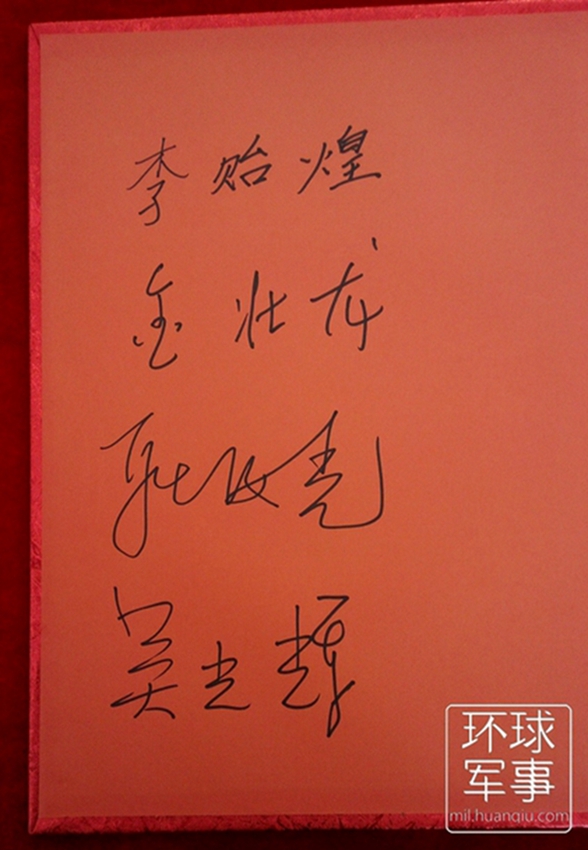 李贻煌
金壮龙
耿汝光
吴光辉
环球
军事
mil.huanqiu.com